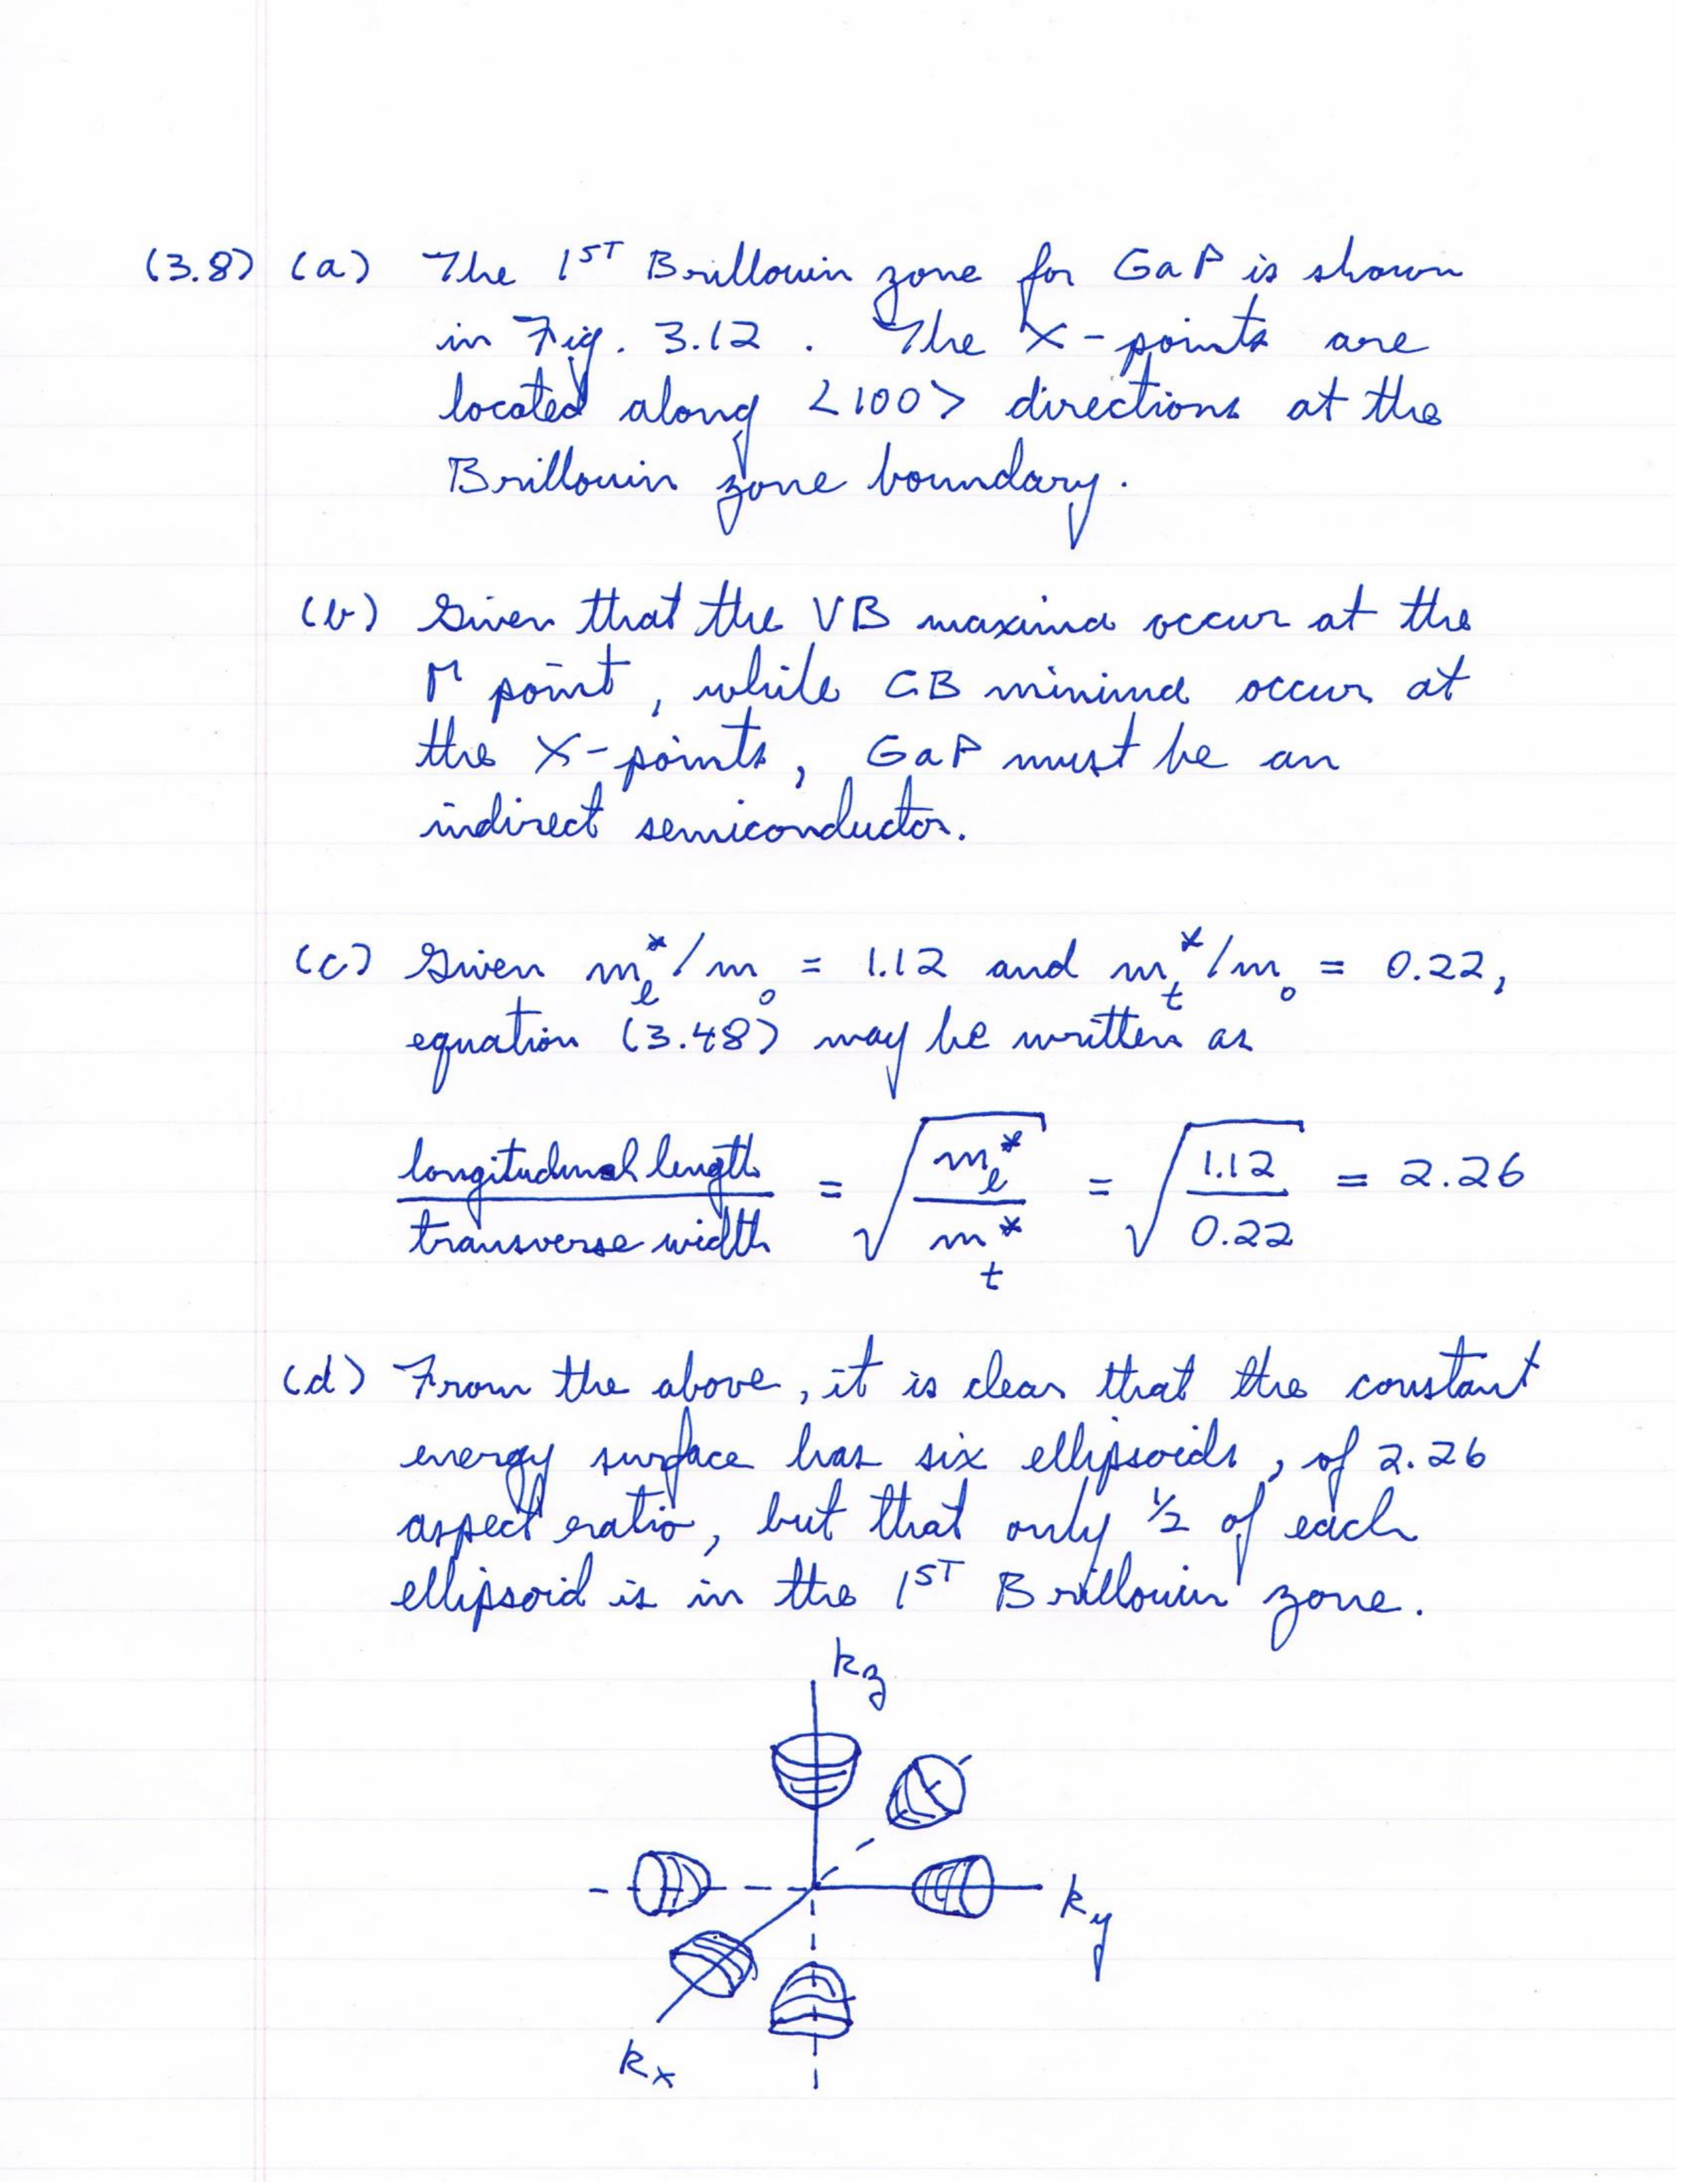 (3.8) (a) The 1ST Brillouin zone for GaP is shown
in Fig. 3.12 . The X-points are
located along <100> directions at the
Brillouin zone boundary.
(b) Given that the VB maxima occur at the
Γ point, while CB minima occur at
the X-points, GaP must be an
indirect semiconductor.
(c) Given mℓ*/m₀ = 1.12 and mt*/m₀ = 0.22,
equation (3.48) may be written as
longitudinal length / transverse width = √(mℓ*/mt*) = √(1.12/0.22) = 2.26
(d) From the above, it is clear that the constant
energy surface has six ellipsoids, of 2.26
aspect ratio, but that only 1/2 of each
ellipsoid is in the 1ST Brillouin zone.
kz
ky
kx